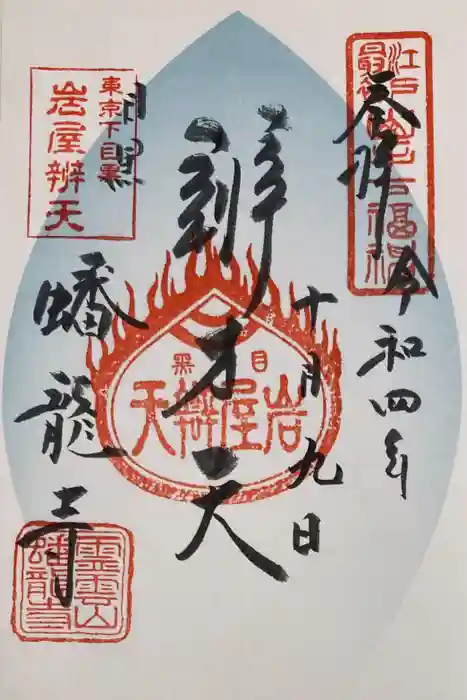 江戸最初山手七福神
奉拝
令和四年
十月九日
辨才天
目黒
岩屋辨天
東京下目黒
岩屋辨天
目黒
蟠龍寺
靈雲山
蟠龍寺